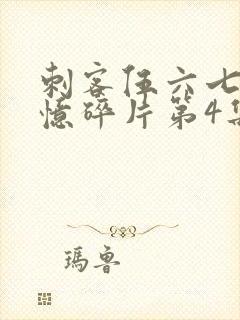 刺客伍六七
憶碎片第4集
瑪魯